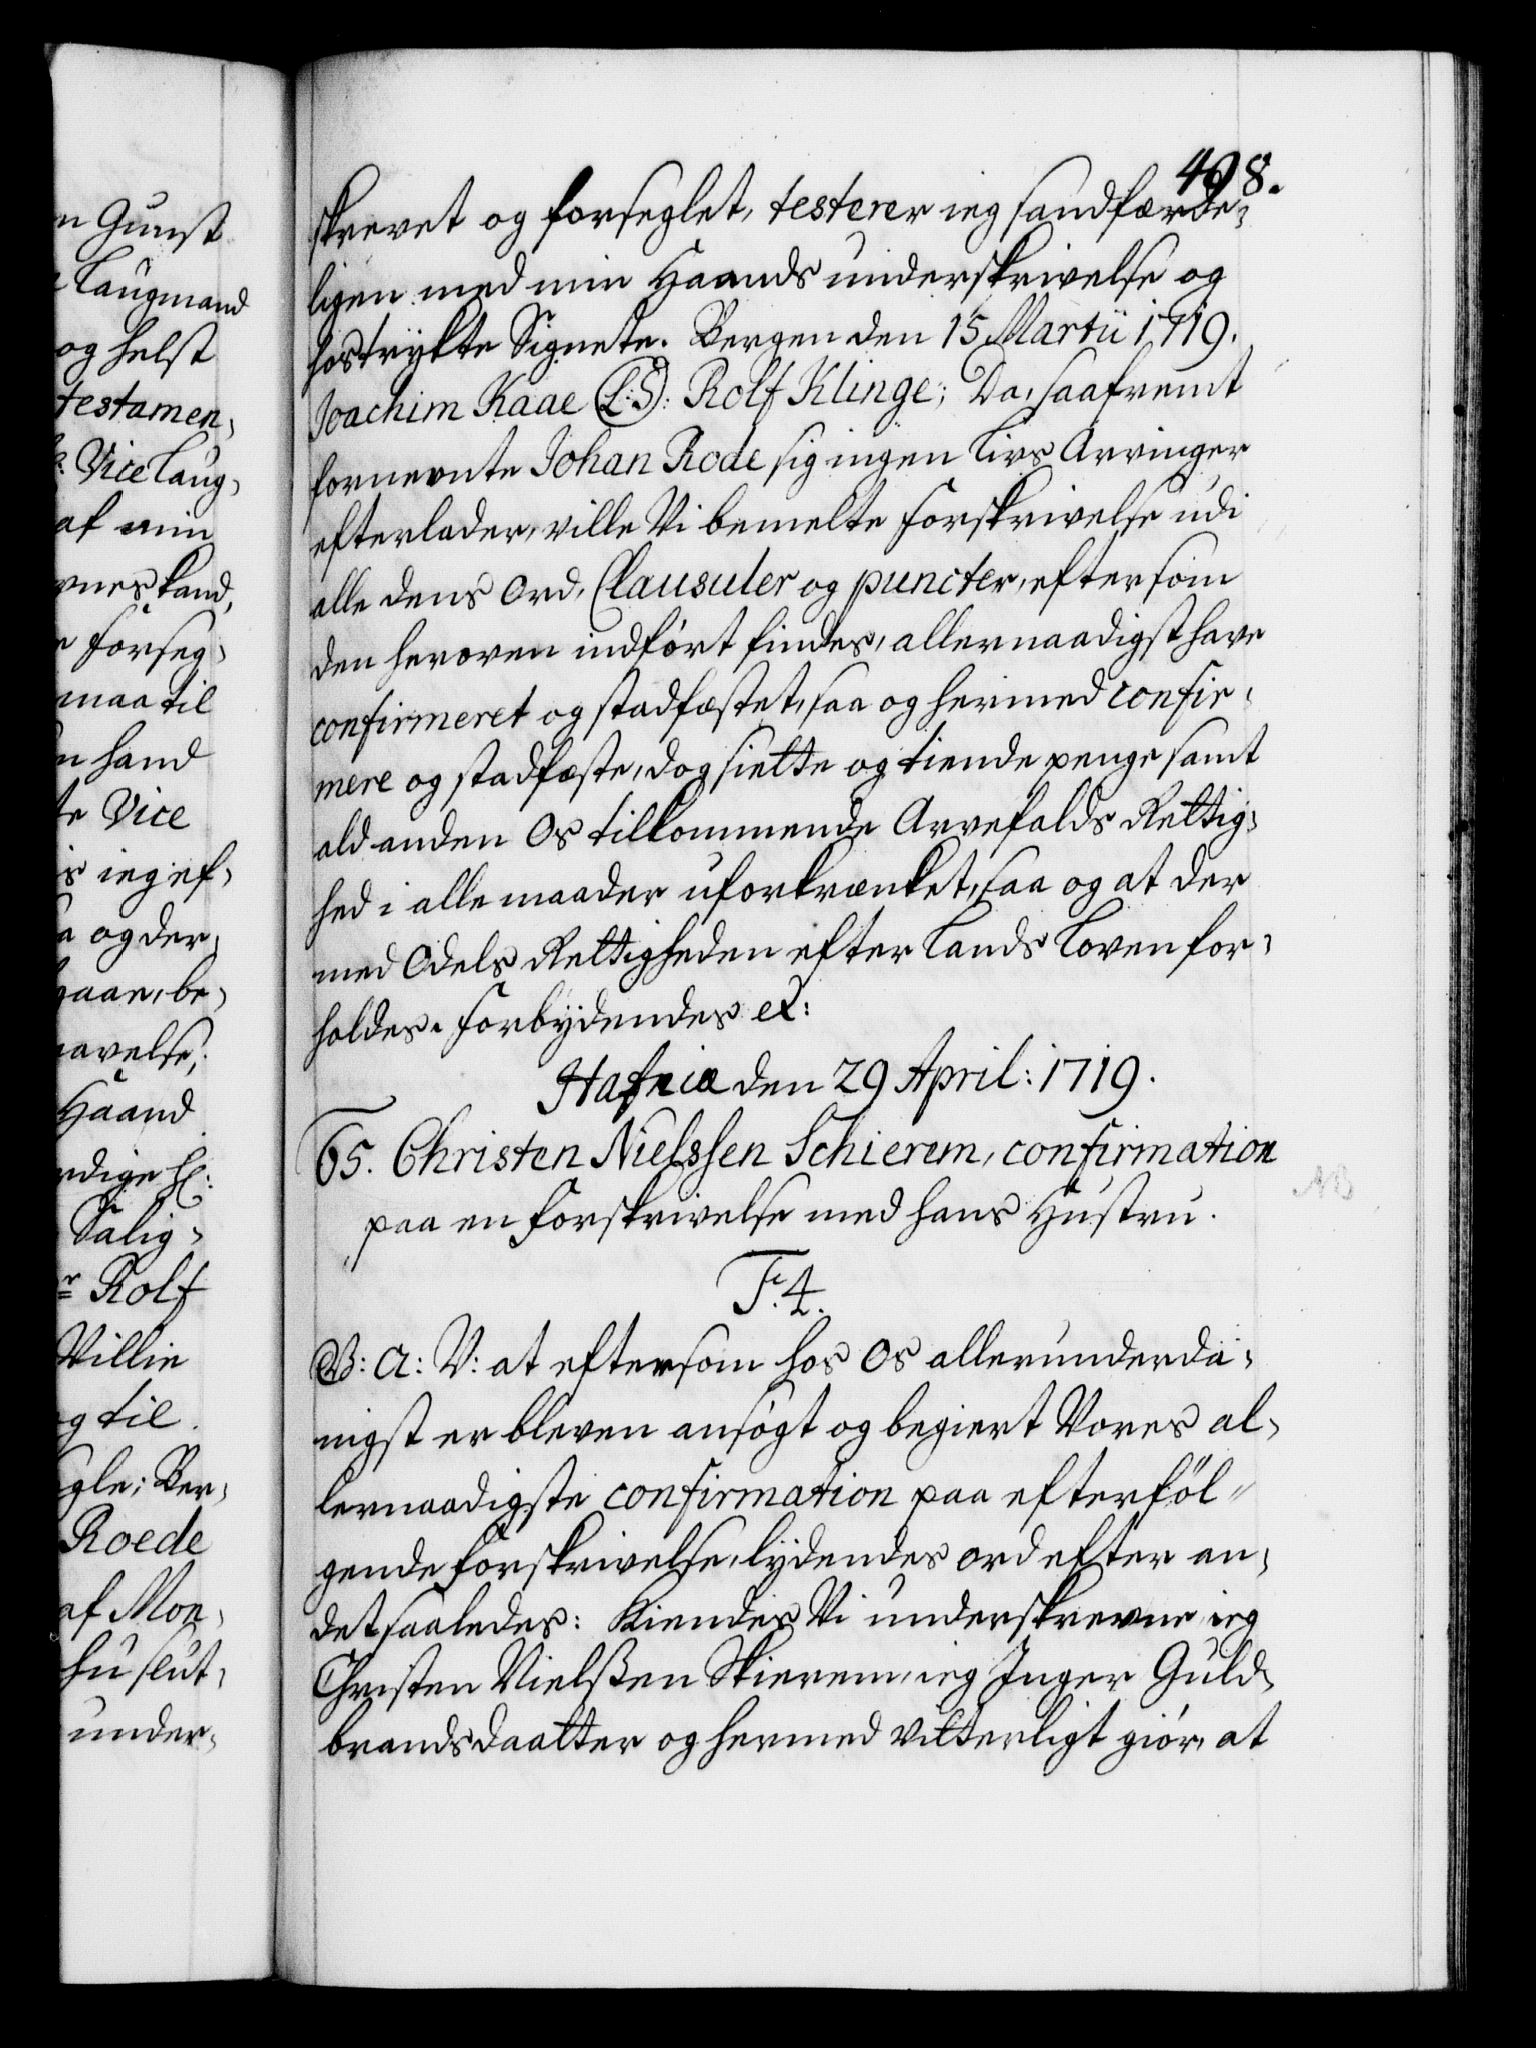 n Gunst
Laugmand
og helst
testamen-
Vice Laug-
af min
vnes kand,
e forseg-
maa til
n hand
te Vice
is ieg ef-
a og der-
gaae, be-
avelse,
Haand
rdige H:
Salig-
r Rolf
Villie
g til.
gle; Ber-
Roede
af Mon-
hu slut-
under-
498.
skrevet og forseglet, testerer ieg sandfærde-
ligen med min Haands underskrivelse og
hostrykte Signete. Bergen den 15 Martii 1719.
Joachim Kaae (L:S): Rolf Klinge; Da, saafremt
fornevnte Johan Rode sig ingen Livs Arvinger
efterlader, ville Vi bemelte forskrivelse udi
alle dens Ord, Clausuler og puncter, eftersom
den heroven indført findes, allernaadigst have
confirmeret og stadfæstet, saa og hermed confir-
mere og stadfæste, dog siette og tiende penge samt
ald anden Os tilkommende Arvefalds Rettig-
hed i alle maader uforkrænket, saa og at der
med Odels Rettigheden efter Lands Loven for-
holdes. Forbydendes &:
Hafniæ den 29 April: 1719.
65. Christen Nielssen Schierem, confirmation
paa en forskrivelse med hans Hustru.
NB
F. 4.
G: A: V: at eftersom hos Os allerunderda-
nigst er bleven ansøgt og begiert Vores al-
lernaadigste confirmation paa efterføl-
gende forskrivelse, lydendes ord efter an-
det saaledes: Kiendes Vi underskrevne, ieg
Christen Nielssen Skierem, ieg Inger Guld-
brandsdaatter og hermed vitterligt giør, at